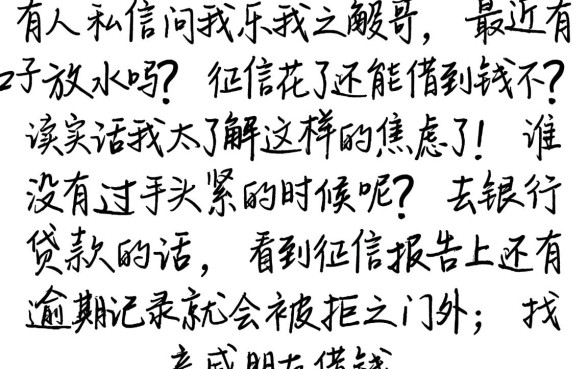 有人私信问我乐我之解哥，最近有
口子放水吗？征信花了还能借到钱不？
读实话我太了解这样的焦虑了！谁
没有过手头紧的时候呢？去银行
贷款的话，看到征信报告上还有
逾期记录就会被拒之门外；找
亲戚朋友借钱